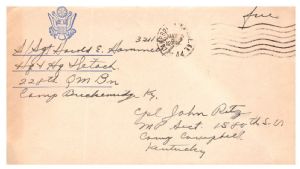 free
S/Sgt Harold E. Hammel
Hq & Hq Detach.
228th QM Bn
Camp Breckenridge Ky.
Cpl John Ritz
MP Sect. 1580th S.U
Camp Campbell
Kentucky